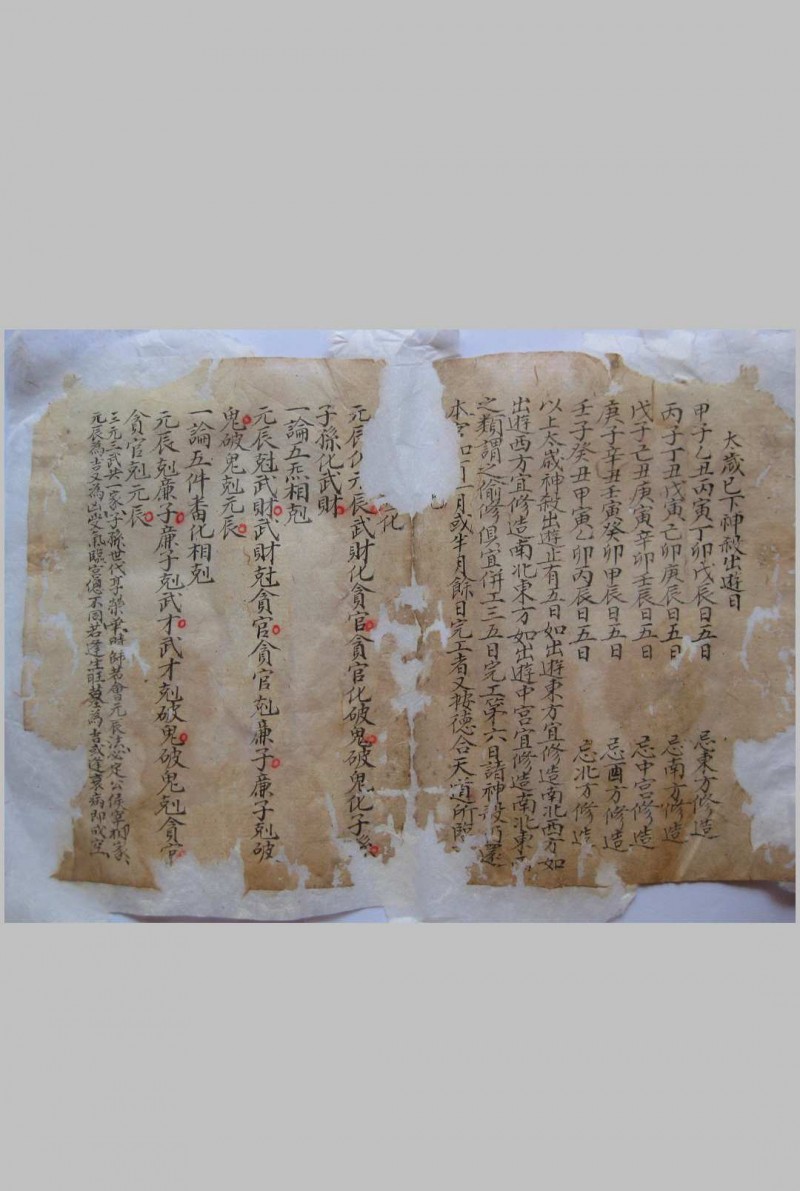 太歲已下神殺出遊日
甲子乙丑丙寅丁卯戊辰日五日 忌東方修造
丙子丁丑戊寅己卯庚辰日五日 忌南方修造
戊子己丑庚寅辛卯壬辰日五日 忌中宮修造
庚子辛丑壬寅癸卯甲辰日五日 忌酉方修造
壬子癸丑甲寅乙卯丙辰日五日 忌北方修造
以上太歲神殺出遊止有五日如出遊東方宜修造南北西方如
出遊西方宜修造南北東方如出遊中宮宜修造南北東
之類謂之偷修俱宜併工三五日完工第六日諸神殺乃還
本宮如 一月或半月餘日完工者又按德合天道所臨
化
元辰化元辰武財化貪官貪官化破鬼破鬼化子
子孫化武財
一論五炁相剋
元辰尅武財武財尅貪官貪官剋亷子亷子剋破
鬼破鬼剋元辰
一論五件番化相剋
元辰剋亷子亷子剋武才武才剋破鬼破鬼剋貪官
貪官剋元辰
三元三武共一家子孫世代享榮華時師若會元辰法必定公侯宰相
元辰為吉又為凶受氣臨宮總不同若逢生旺墓為吉或逢衰病即成空